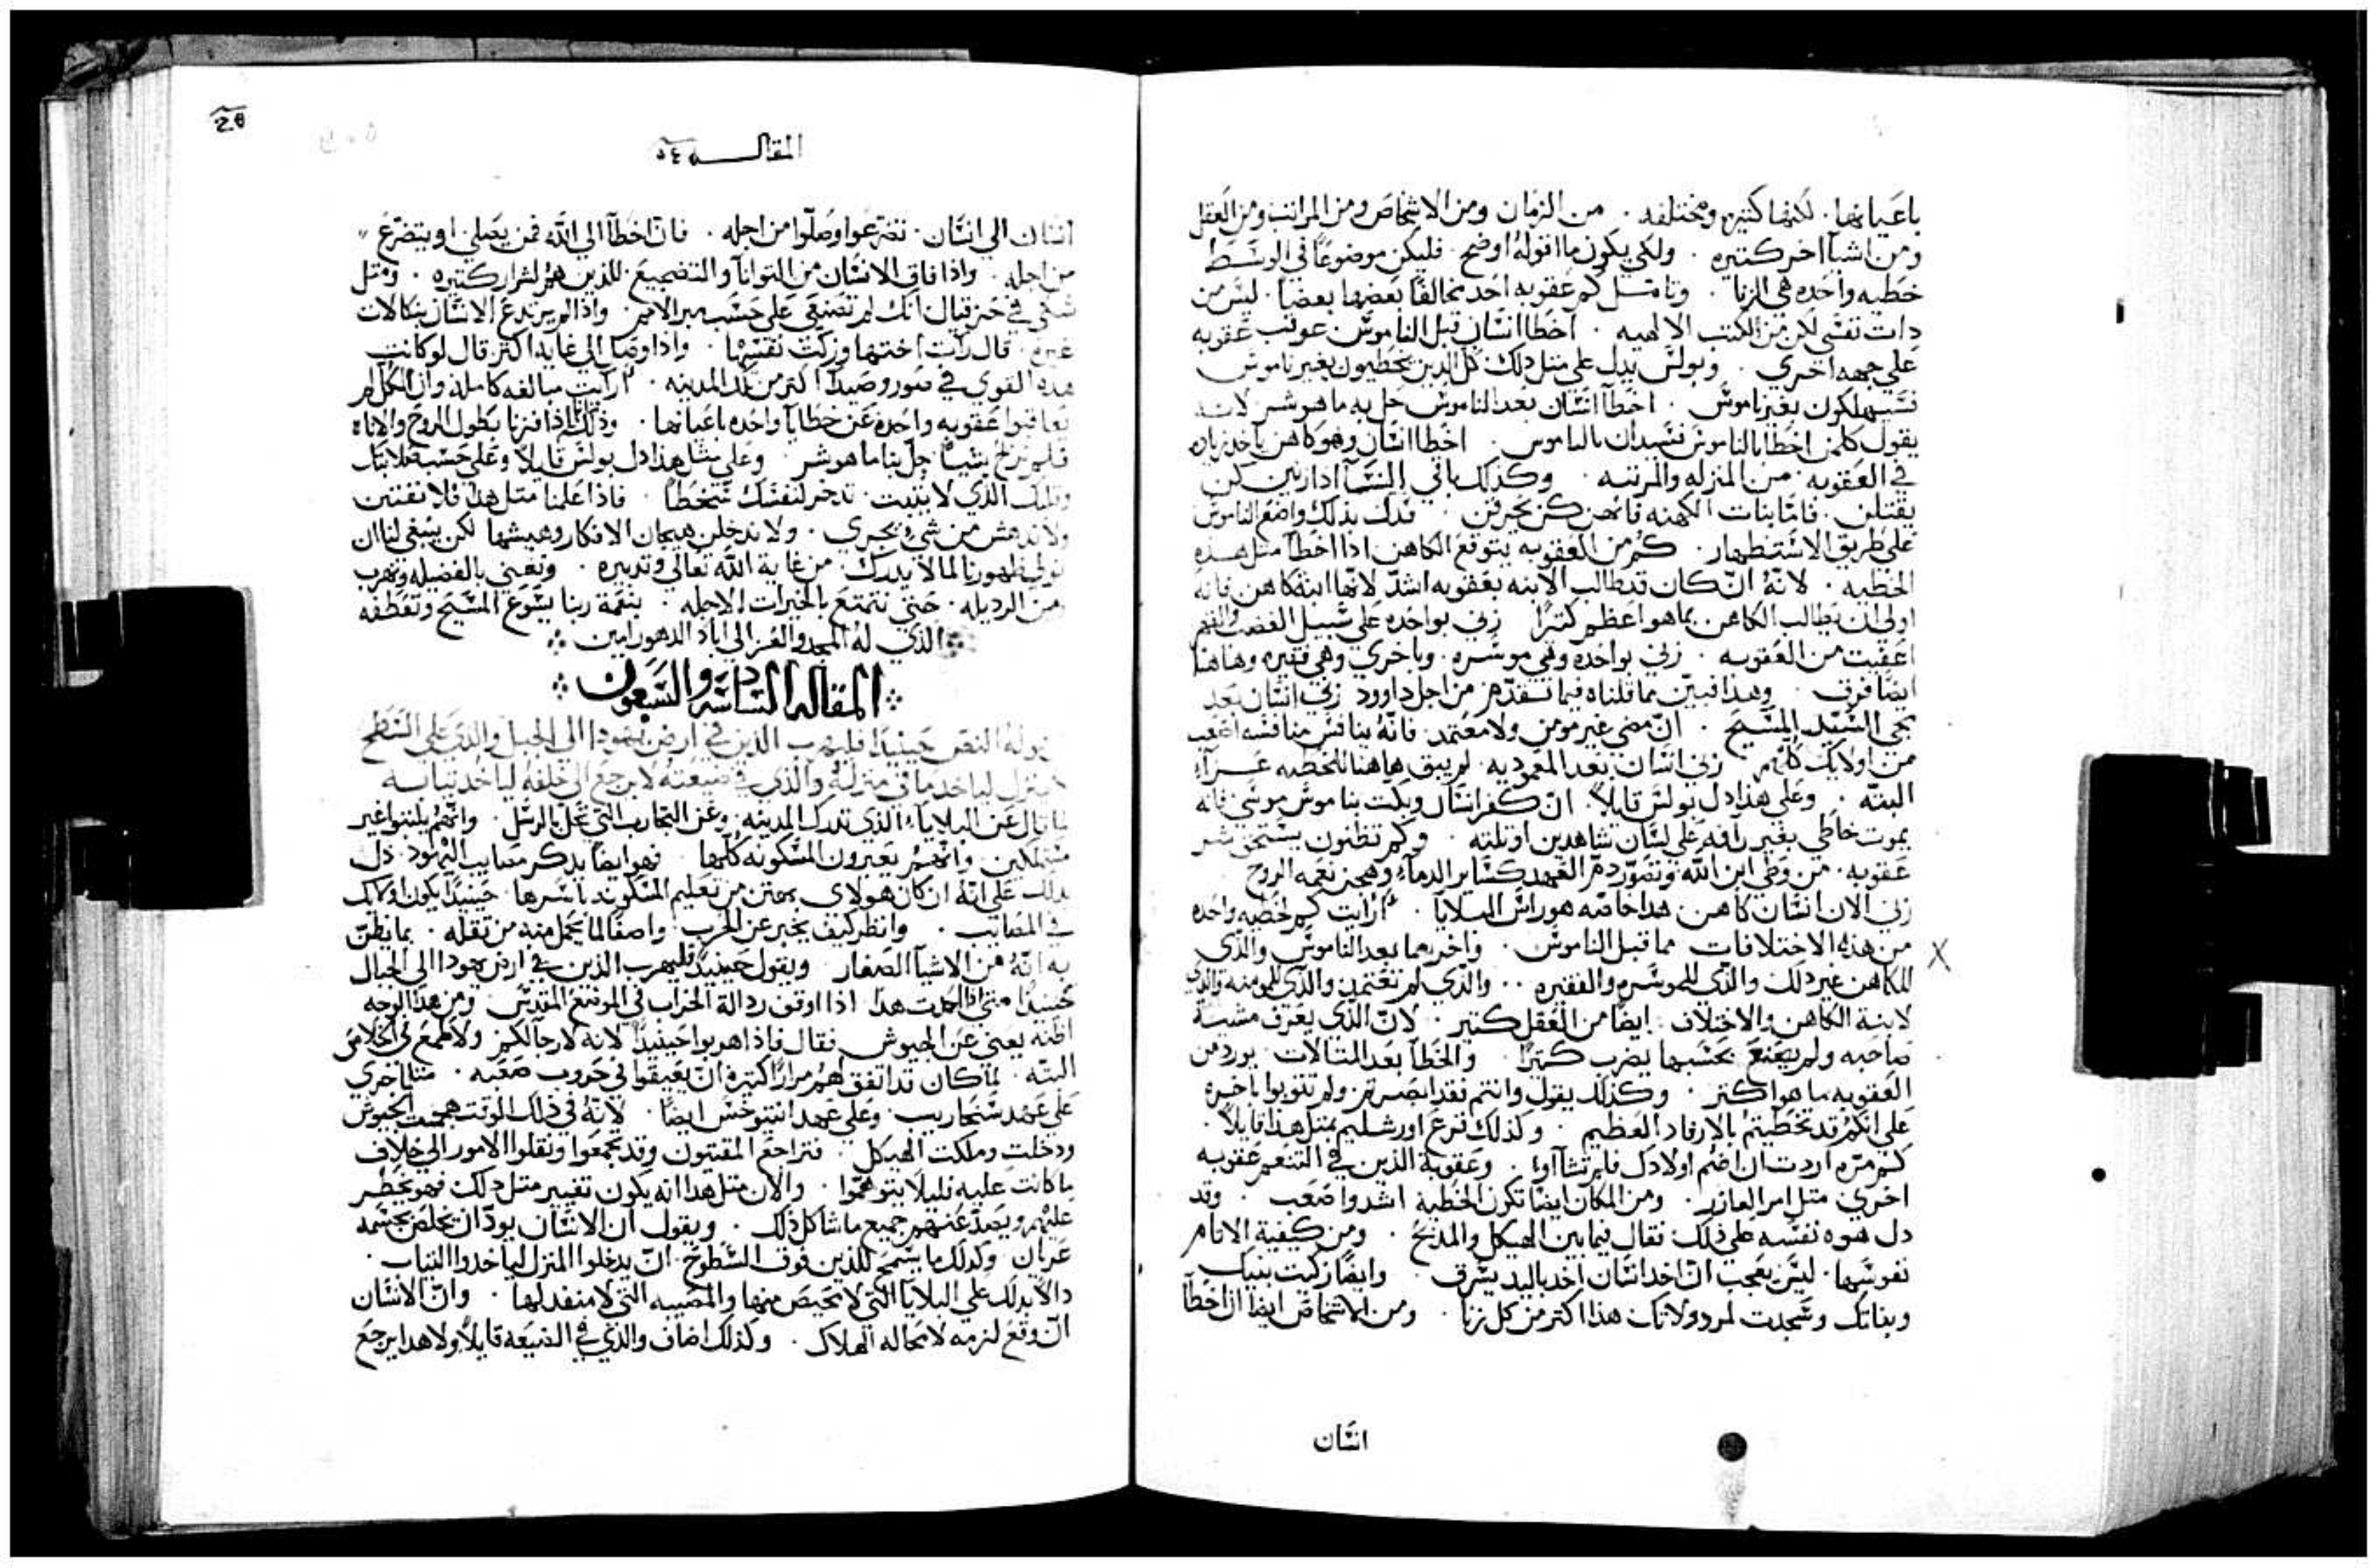 باعيانها. لكنها كثيره ومختلفه. من الزمان ومن الاشخاص ومن المراتب ومن العقل
ومن اشيآ اخر كثيره. ولكي يكون ما اقوله اوضح. فليكن موضوعًا في الوسَط
خطيه واحده هي الزنا. وتامل كم عقوبه اجد مخالفًا بعضها بعضًا. ليس من
دات نفسي لكن من الكتب الالهيه. اخطا انسان قبل الناموس عوقب عقوبه
علي جهه اخري. وبولس يدل علي متل دلك كل الدين يخطيون بغير ناموس
فسيهلكون بغير ناموس. اخطآ انسان بعد الناموس حل به ما هو شر لانه
يقول كلمن اخطا بالناموس فسيدان بالناموس. اخطا انسان وهو كاهن ياخد زياده
في العقوبه من المنزله والمرتبه. وكدلك باقي النسآ ادا زنين كن
يقتلن. فاما بنات الكهنه فانهن كن يحرقن. فدل بدلك واضع الناموس
علي طريق الاستظهار. كم من العقوبه يتوقع الكاهن ادا اخطآ متل هده
الخطيه. لانهُ ان كان تطالب الابنه بعقوبه اشدّ لانها ابنة كاهن فانه
اولي ان يطالب الكاهن بما هو اعظم كتيرًا زني بواحده علي سبيل الغضب والقهر
اعفيت من العقوبه. زني بواحده وهي موسره. وباخري وهي فقيره وهاهنا
ايضًا فرق. وهدا فبيّن مما قلناه فيما تقدّم من اجل داوود زني انسان بعد
مجي السيد المسيح. ان مضي غير مومن ولا معتمد فانه يناقش مناقشه اصعب
من اولايك كلهم زني انسان بعد المعموديه. لم يبق هاهنا للخطيه عزآء
البته. وعلي هدا دل بولس قايلاً. ان كفر انسان ويكت بناموس موسي فانه
يموت خاطي بغير رآفه علي لسان شاهدين او تلته. وكم تظنون يستحق شر
عقوبه. من وطي ابن الله وتصوّر دم العهد كساير الدمآء وهجن نعمه الروح
زني الان انسان كاهن هدا خاصه هو راس البلايا. ارايت كم لخطيه واحده
من هده الاختلافات مما قبل الناموس. واخر بما بعد الناموس والدي
للكاهن غير دلك والدي للموسره والفقيره.. والدي لم تعتمد والدي للمومنه والدي
لابنة الكاهن والاختلاف ايضًا من العقل كتير. لان الدي يعرف مشية
صاحبه ولم يصنع بحسبها يضرب كتيرًا. والخطآ بعد المتالات يورد من
العقوبه ما هو اكتر. وكدلك يقول وانتم فقد ابصرتم ولم تتوبوا باخره
علي انكم قد تخطيتم بالارفاد العظيم. وكدلك قرع اورشليم بمتل هدا قايلاً.
كم مره اردت ان اضم اولادك فلم تشآاوا. وعقوبة الدين في التنعم عقوبه
اخري. متل امر العازر. ومن المكان ايضًا تكون الخطيه اشد واصعب. وقد
دل هوه نفسه علي دلك فقال فيما بين الهيكل والمدبح. ومن كيفية الاتام
نفوسها. ليس بعجب ان اخد انسان اخد باليد يسرق. وايضًا زكيت بنيك
وبناتك وسجدت لمردولاتك هدا اكتر من كل زنا. ومن الاشخاص ايضًا ان اخطآ
انسان
المقاله ٥٤
انسان الي انسان. تضرعوا وصلّوا من اجله. فان اخطآ الي الله فمن يصلي او يتضرع
من اجله. وادا فاق الانسان من التوانآ والتضجيع للدين هم اشرار كتيره. ومتل
شكي في حزقيال انك لم تصنعي علي حسب سير الامم. وادا لم يرتدع الانسان بنكالات
غيره. قال رآت اختها وزكت نفسها. وادا وصل الي غايه اكتر قال لو كانت
هده القوي في صور وصيدآ اكتر من تلك المدينه. ارآيت مبالغه كامله وان الكل لم
يعاقبوا عقوبه واحده عن خطايا واحده باعيانها. ودلك ادا فزنا بطول الروح والاناه
فلم نربح بشيًا حل بنا ما هو شر. وعلي مثل هدا دل بولس قايلاً وعلي حسب صلابتك
وقلبك الدي لا يتوب. تدخر لنفسك سخطًا. فادا علمنا متل هدا فلا نفتتن
ولا ندهش من شيء يجري. ولا ندخلن هيجان الافكار وهيشها لكن ينبغي لنا ان
نولي ظهورنا لما لا يدرك من غاية الله تعالي وتدبيره. ونعني بالفضيله ونهرب
من الرديله. حتي نتمتع بالخيرات الاجله. بنعمة ربنا يسوع المسيح وتعطفه
الدي لهُ المجد والعز الي اباد الدهور امين
المقاله السادسه والسبعون
قوله النص حينيدًا فليهرب الدين في ارض يهودا الي الجبل والدي علي السطح
لا ينزل لياخد ما في منزله والدي في ضيعته لا يرجع الي خلفه لياخد تيابه
لما قال عن البلايآ الدي تدرك المدينه وعن التجارب التي تحل بالرسل. وانهم يلبتوا غير
متملكين وانهم يعبرون المسكونه كلها. فهو ايضًا يدكر مصايب اليهود. دل
بدلك علي انه ان كان هولاي من تعليم المسكونه باسرها حينيدًا يكون اولايك
في المصايب. وانظر كيف يخبر عن الحرب. واصفًا لما يحمل منه من تقله. بما يظنّ
به انهُ من الاشيآ الصغار ويقول حينيدًا فليهرب الدين في ارض يهودا الي الجبال
حينيدًا متي ادا اوقف ردالة الخراب في الموضع المقدس. ومن هدا الوجه
اظنه يعني عن الجيوش. فقال فادا اهربوا حينيدًا لانه لا رجآ لكم ولا طمع في الخلاص
البتّه. لما كان قد اتفق لهم مرارًا كتيره ان يفيقوا في حروب صعبه. متلًا اخري
علي عهد سنحاريب. وعلي عهد انتيوخس ايضًا. لانهُ في دلك الوقت هجمت الجيوش
ودخلت وملكت الهيكل. فتراجع المقبيون وقد تجمعوا ونقلوا الامور الي خلاف
ما كانت عليه فليلا يتوهموا. والان متل هدا انه يكون تغيير متل دلك فهو يحظر
عليهم ويصدّ عنهم جميع ما شاكل دلك. ويقول ان الانسان يودّ ان يخلص بجسمه
عريان وكدلك ما يسمح للدين فوق السطوح ان يدخلوا المنزل لياخدوا التياب.
دالًا بدلك علي البلايا التي لا محيص منها والمصيبه التي لا منفد لها. وان الانسان
ان وقع لزمه لا محاله الهلاك. وكدلك اضاف والدي في الضيعه قايلاً ولا هدا يرجع